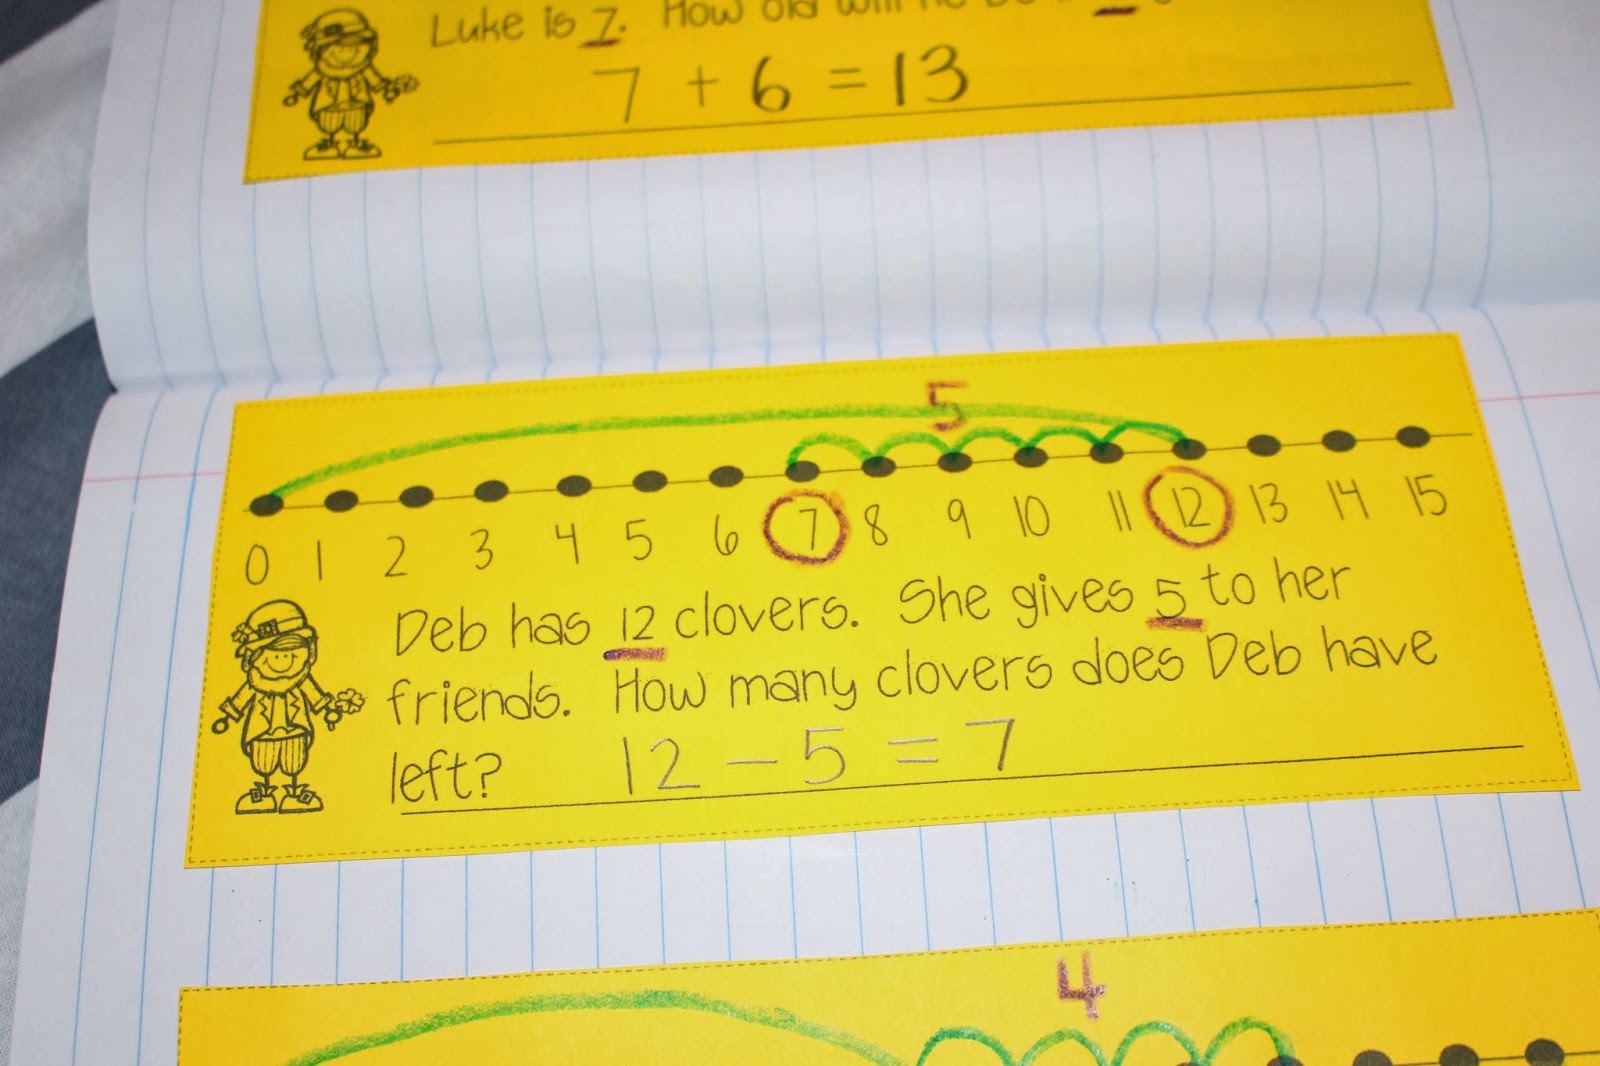 Luke is 7. How old will he be
7 + 6 = 13
5
0 1 2 3 4 5 6 7 8 9 10 11 12 13 14 15
Deb has 12 clovers. She gives 5 to her
friends. How many clovers does Deb have
left? 12 - 5 = 7
4